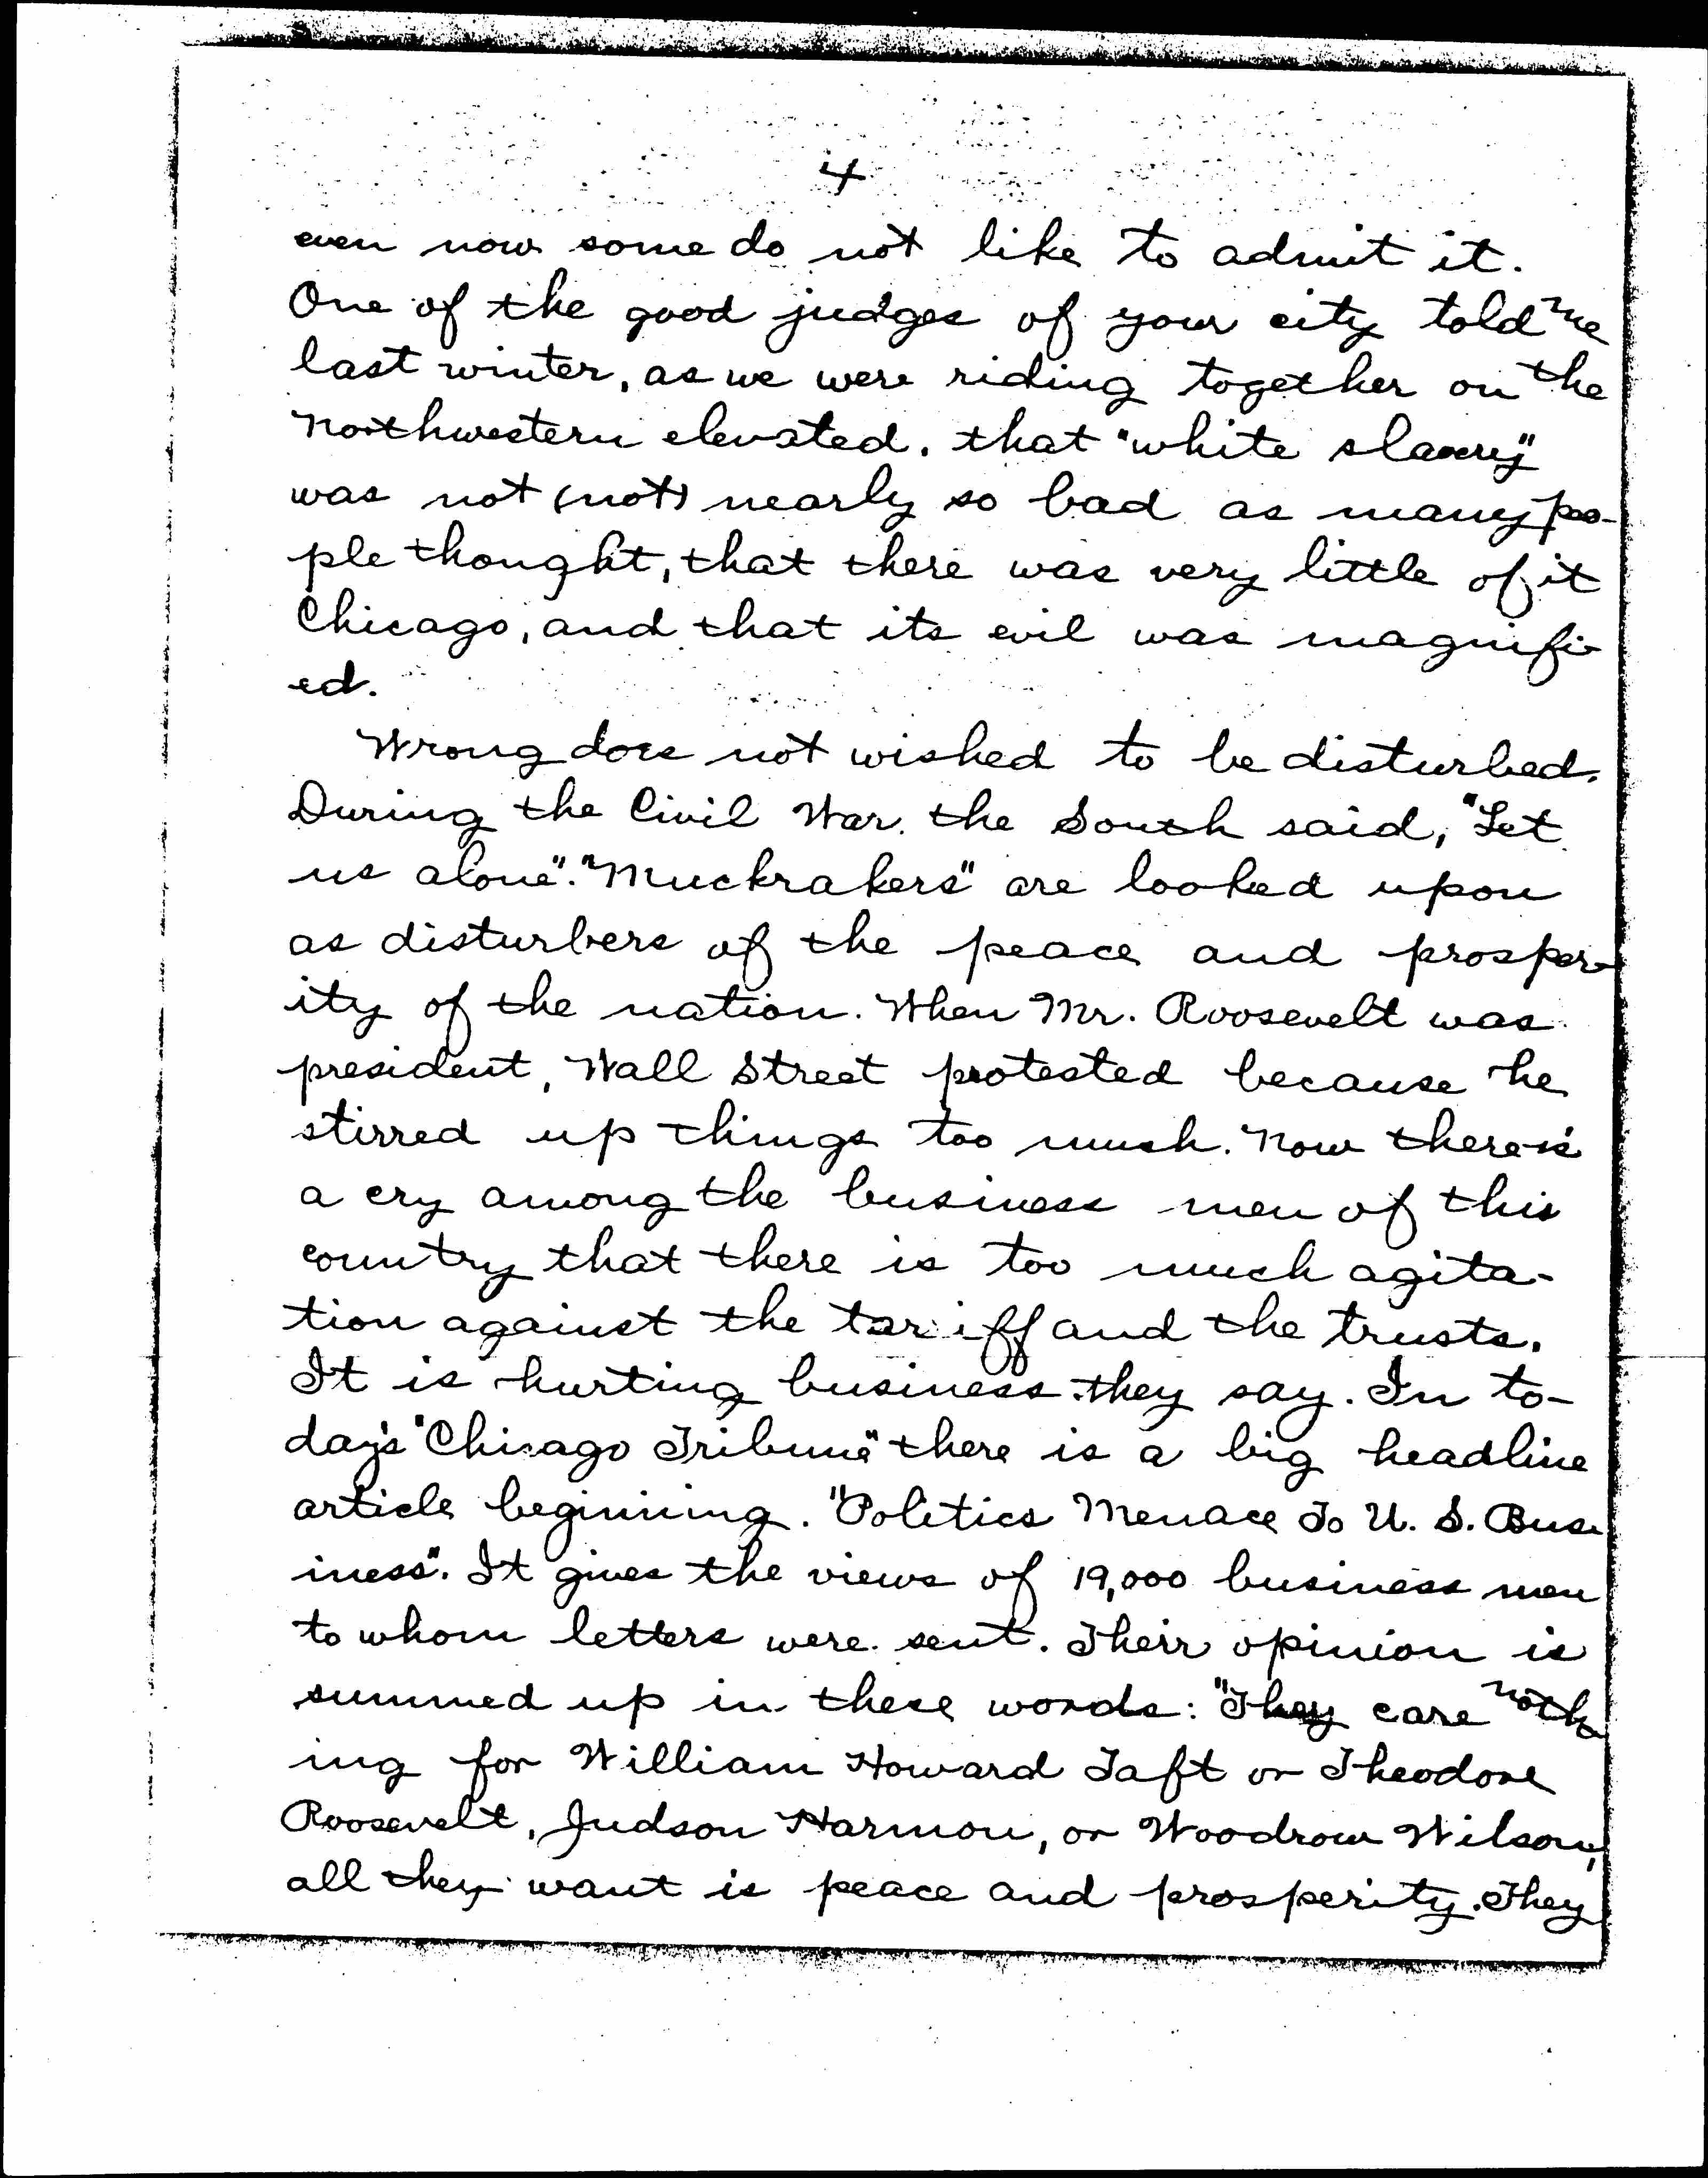 4
even now some do not like to admit it.
One of the good judges of your city told me
last winter, as we were riding together on the
Northwestern elevated, that "white slavery"
was not (not) nearly so bad as many peo-
ple thought, that there was very little of it
Chicago, and that its evil was magnifi-
ed.
Wrong does not wished to be disturbed.
During the Civil War, the South said, "Let
us alone". "Muckrakers" are looked upon
as disturbers of the peace and prosper-
ity of the nation. When Mr. Roosevelt was
president, Wall Street protested because he
stirred up things too much. Now there is
a cry among the business men of this
country that there is too much agita-
tion against the tariff and the trusts.
It is hurting business they say. In to-
day's "Chicago Tribune" there is a big headline
article beginning. "Politics Menace To U. S. Bus-
iness". It gives the views of 19,000 business men
to whom letters were sent. Their opinion is
summed up in these words: "They care noth-
ing for William Howard Taft or Theodore
Roosevelt, Judson Harmon, or Woodrow Wilson,
all they want is peace and prosperity. They